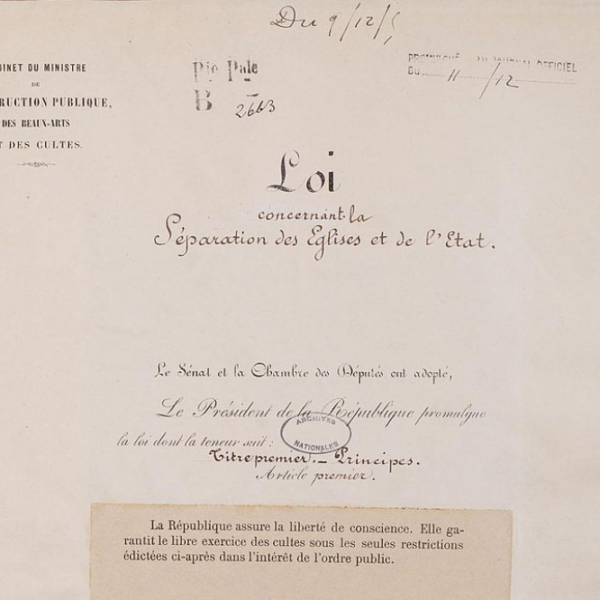 Du 9/12/5
BINET DU MINISTRE
DE
RUCTION PUBLIQUE,
DES BEAUX-ARTS
T DES CULTES.
Pie Pale
B - 2663
PROMULGUÉ AU JOURNAL OFFICIEL
DU 11/12
Loi
concernant la
Séparation des Eglises et de l'Etat.
Le Sénat et la Chambre des Députés ont adopté,
Le Président de la République promulgue
la loi dont la teneur suit :
ARCHIVES
NATIONALES
Titre premier. _ Principes.
Article premier.
La République assure la liberté de conscience. Elle ga-
rantit le libre exercice des cultes sous les seules restrictions
édictées ci-après dans l'intérêt de l'ordre public.